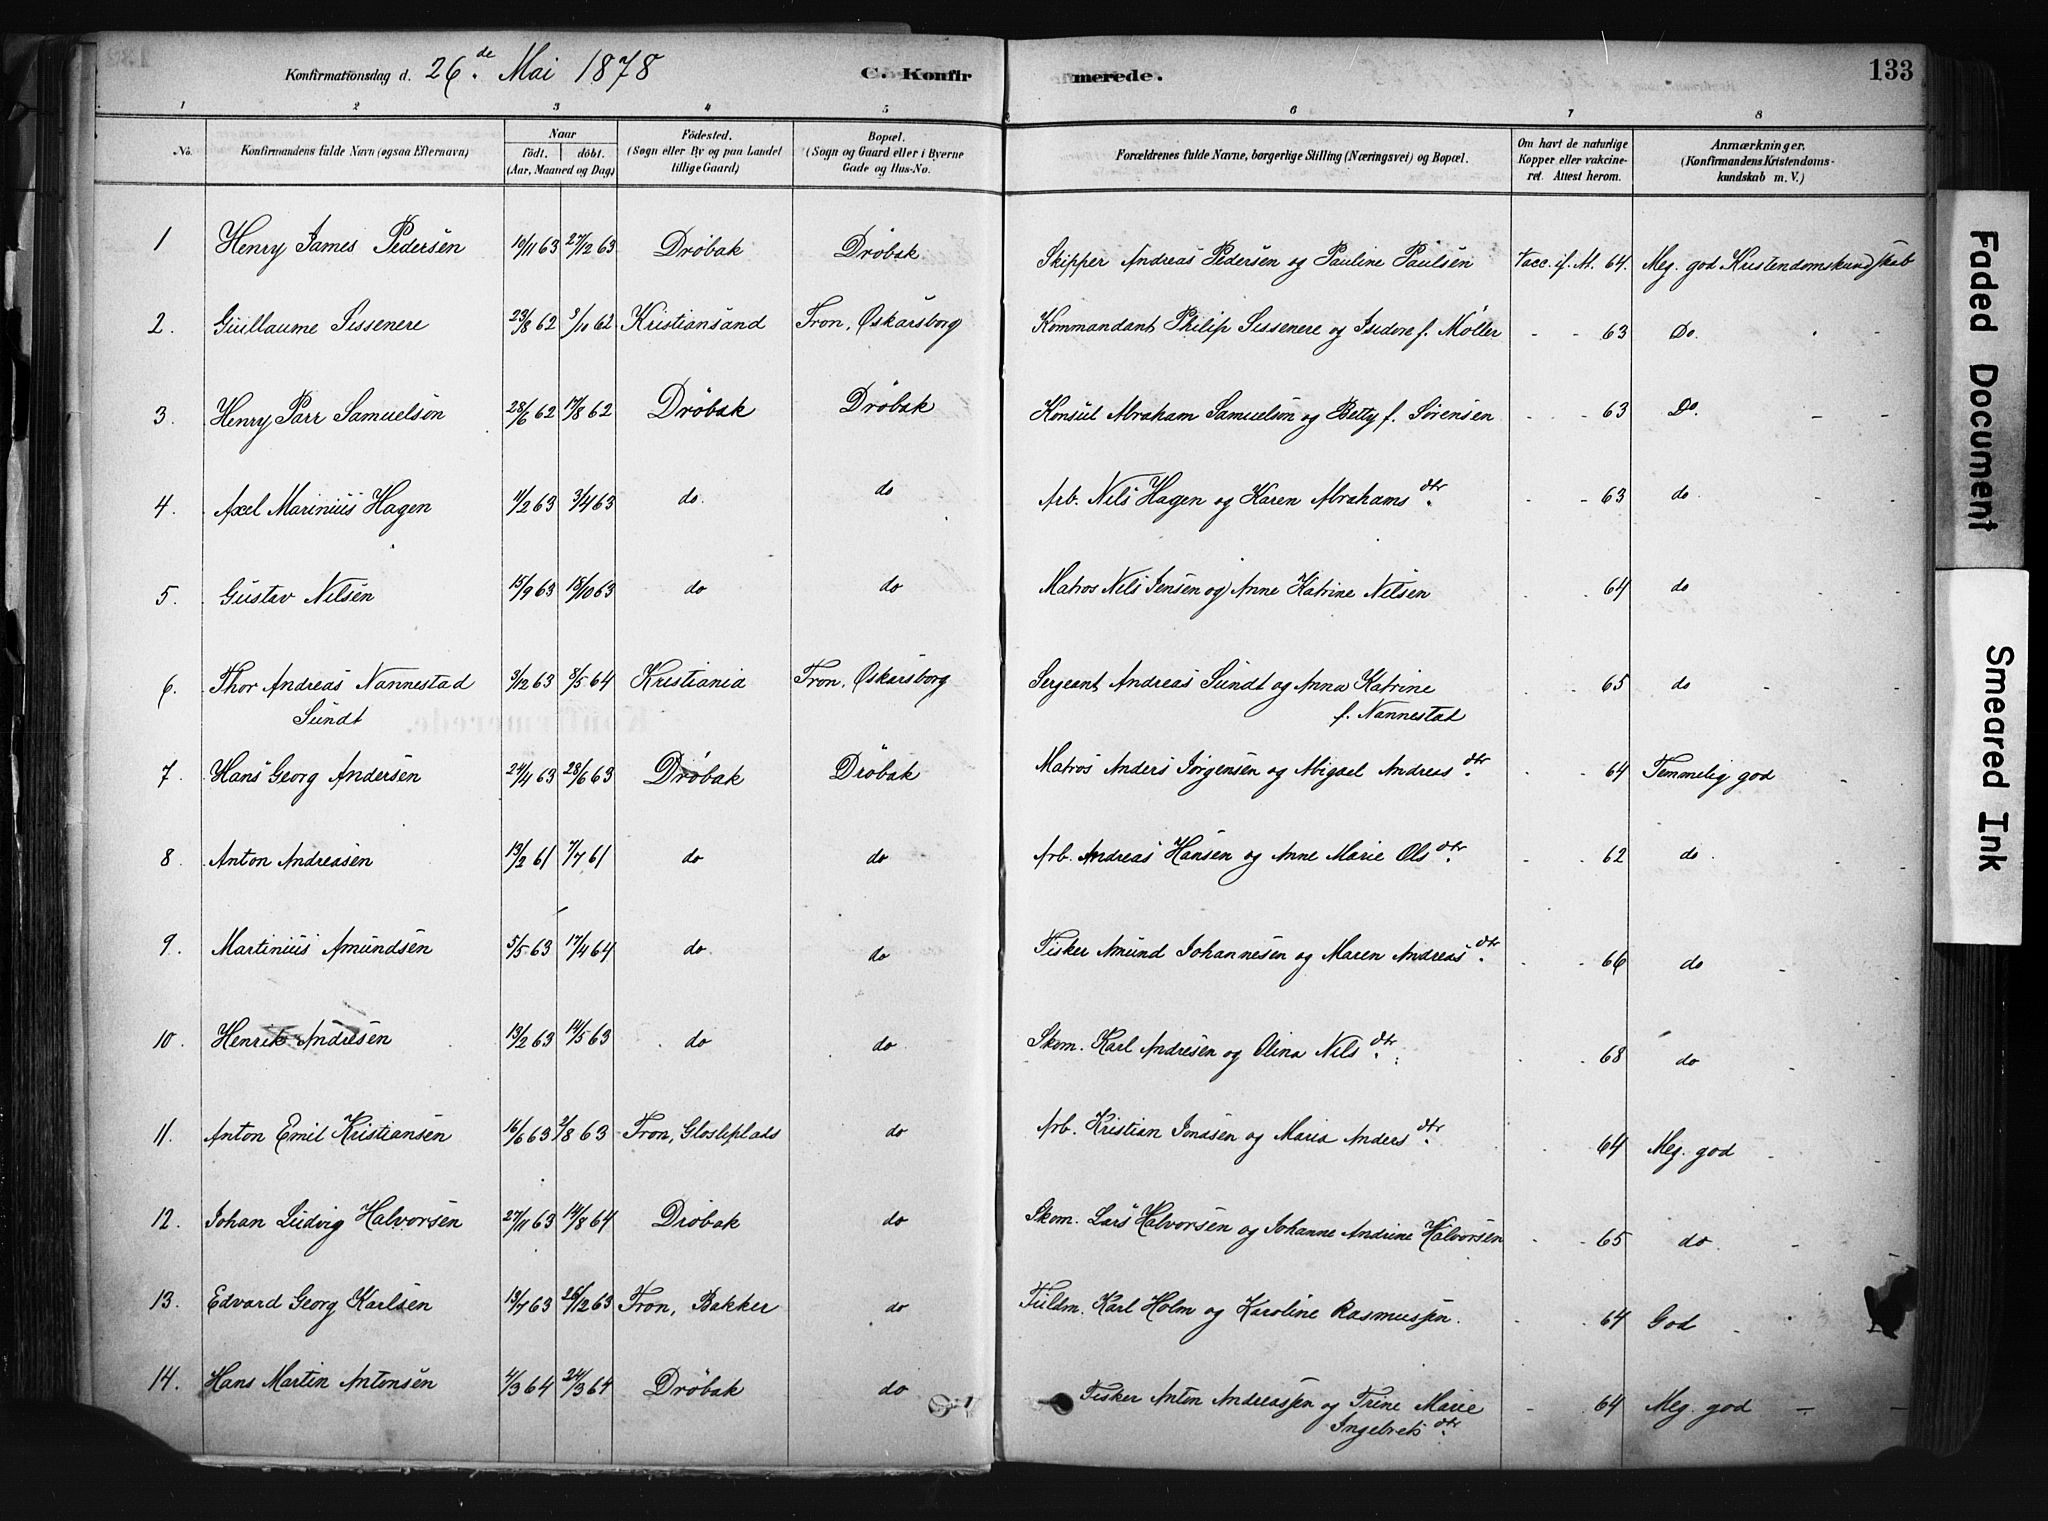 Konfirmationsdag d. 26.de Mai 1878 C. Konfirmerede. 133
1 2 3 4 5 6 7 8
No. Konfirmandens fulde Navn (ogsaa Efternavn) Naar födt. döbt. (Aar, Maaned og Dag) Födested. (Sogn eller By og paa Landet tillige Gaard) Bopæl. (Sogn og Gaard eller i Byerne Gade og Hus-No. Forældrenes fulde Navne, borgerlige Stilling (Næringsvei) og Bopæl. Om havt de naturlige Kopper eller vakcineret. Attest herom. Anmærkninger. (Konfirmandens Kristendomskundskab m. V.)
1 Henry James Pedersen 10/11 63 27/12 63 Drøbak Drøbak Skipper Andreas Pedersen og Pauline Paulsen Vacc. if. At. 64. Meg. god Kristendomskundskab
2. Guillaume Sissenere 23/8 62 5/10 62 Kristiansand Fron, Oskarsborg Kommandant Philip Sissenere og Isidore f. Møller - - 63 Do. -
3. Henry Parr Samuelson 28/6 62 17/8 62 Drøbak Drøbak Konsul Abraham Samuelson og Betty f. Sørensen - - 63 Do. - -
4. Axel Marinius Hagen 11/2 63 3/4 63 do. do Arb. Nils Hagen og Karen Abrahams dtr. - - 63 do -
5. Gustav Nilsen 15/9 63 18/10 63 do do Matros Nils Jensen og Anne Katrine Nilsen - - 64 do
6. Thor Andreas Nannestad 3/12 63 8/5 64 Kristiania Fron, Oskarsborg Sergeant Andreas Sundt og Anna Katrine - - 65 do -
Sundt f. Nannestad
7. Hans Georg Andersen 24/4 63 28/6 63 Drøbak Drøbak Matros Anders Jørgensen og Abigael Andreas dtr. - - 64 Temmelig god -
8. Anton Andreasen 13/2 61 7/7 61 do do Arb. Andreas Hansen og Anne Marie Ols dtr. - - 62 do -
9. Martinius Amundsen 5/5 63 17/4 64 do do Fisker Amund Johannesen og Maren Andreas dtr. - - 66 do -
10. Henrik Andresen 13/2 63 14/5 63 do do Skom. Karl Andresen og Olina Nils dtr. - - 68 do -
11. Anton Emil Kristiansen 16/6 63 2/8 63 Fron, Glosliplads do Arb. Kristian Jonasen og Maria Anders dtr. - - 64 Meg. god -
12. Johan Ludvig Halvorsen 27/11 63 14/8 64 Drøbak do Skom. Lars Halvorsen og Johanne Andrine Halvorsen - - 65 do. -
13. Edvard Georg Karlsen 13/7 63 26/12 63 Fron, Bakker do Fuldm. Karl Holm og Karoline Rasmussen. - - 64 God -
14. Hans Martin Antonsen 4/3 64 24/3 64 Drøbak do Fisker Anton Andreassen og Trine Marie - - 64 Meg. god - -
Ingebrets dtr.
Faded Document
Smeared Ink